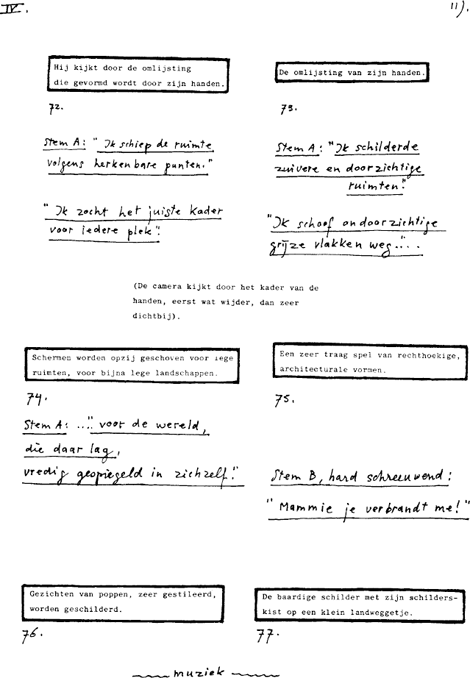 IV.
11).
Hij kijkt door de omlijsting
die gevormd wordt door zijn handen.
72.
Stem A: "Ik schiep de ruimte
volgens herkenbare punten."
"Ik zocht het juiste kader
voor iedere plek".
De omlijsting van zijn handen.
73.
Stem A: "Ik schilderde
zuivere en doorzichtige
ruimten".
"Ik schoof ondoorzichtige
grijze vlakken weg"...
(De camera kijkt door het kader van de
handen, eerst wat wijder, dan zeer
dichtbij).
Schermen worden opzij geschoven voor lege
ruimten, voor bijna lege landschappen.
74.
Stem A: ..." voor de wereld,
die daar lag,
vredig gespiegeld in zichzelf."
Een zeer traag spel van rechthoekige,
architecturale vormen.
75.
Stem B, hard schreeuwend:
"Mammie je verbrandt me!"
Gezichten van poppen, zeer gestileerd,
worden geschilderd.
76.
De baardige schilder met zijn schilders-
kist op een klein landweggetje.
77.
muziek